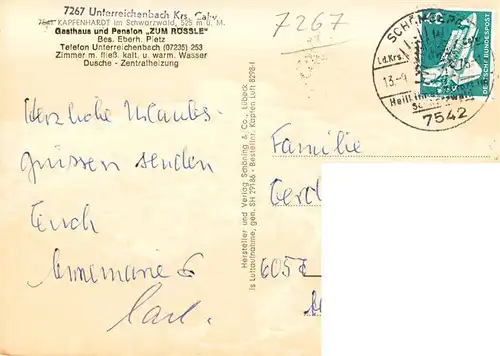 7267 Unterreichenbach Krs. Calw
7541 KAPFENHARDT im Schwarzwald, 525 m ü. M.
Gasthaus und Pension „ZUM RÖSSLE"
Bes. Eberh. Pletz
Telefon Unterreichenbach (07235) 253
Zimmer m. fließ. kalt. u. warm. Wasser
Dusche - Zentralheizung
Herzliche Urlaubs-
grüssen senden
Euch
Annemarie &
Carl.
Hersteller und Verlag Schöning & Co., Lübeck
Is Luftaufnahme, gen. SH 29186 - Bestellnr. Kapfen Luft 8298-1
7267
SCHÖMBERG
Ld.Krs. Calw
13.-9
Schwarzwald
7542
DEUTSCHE BUNDESPOST
Familie
Gerd